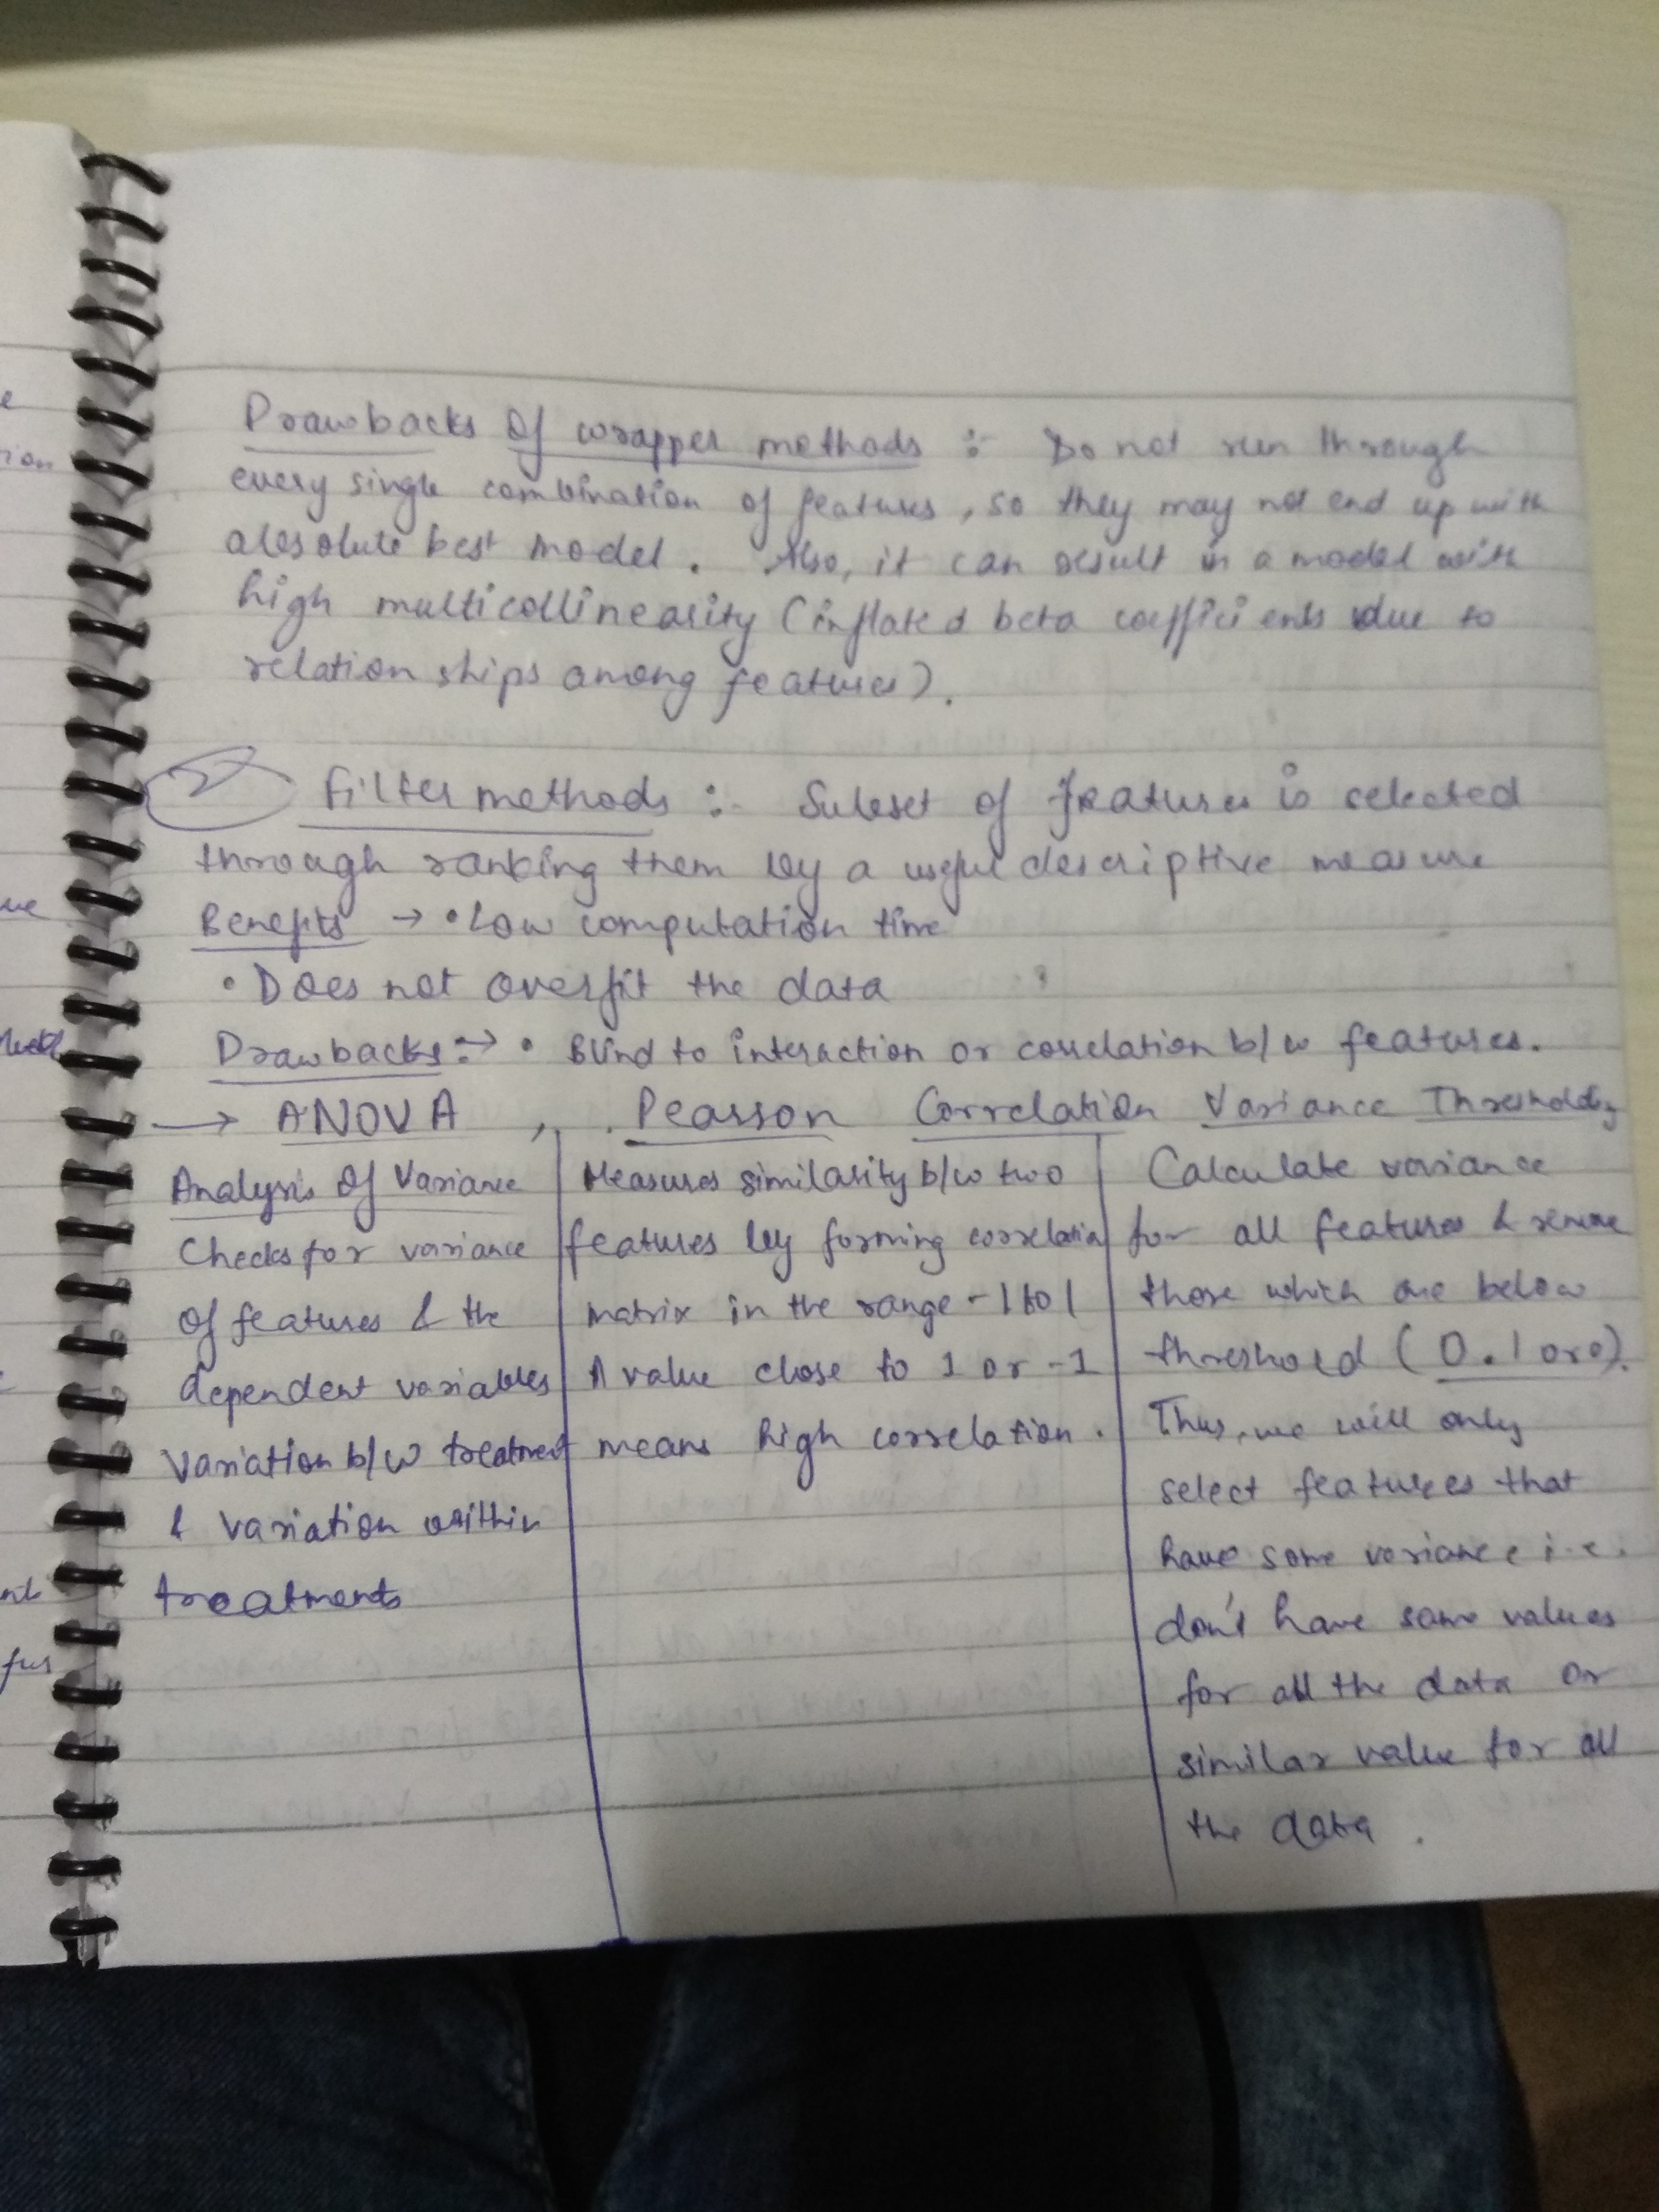 Drawbacks of wrapper methods :- Do not run through
every single combination of features, so they may not end up with
absolute best model. Also, it can result in a model with
high multicollinearity (inflated beta coefficients due to
relationships among features).
2 Filter methods :- Subset of features is selected
through ranking them by a useful descriptive measure
Benefits → • Low computation time
• Does not overfit the data
Drawbacks :→ • Blind to interaction or correlation b/w features.
→ ANOVA , Pearson Correlation Variance Thresholding
Analysis of Variance
Checks for variance
of features & the
dependent variables
Variation b/w treatment
& variation within
treatments
Measures similarity b/w two
features by forming correlation
matrix in the range -1 to 1
A value close to 1 or -1
means high correlation.
Calculate variance
for all features & remove
those which are below
threshold (0.1 or 0).
Thus, we will only
select features that
have some variance i.e.
don't have same values
for all the data or
similar value for all
the data.
e
ion
ue
nt